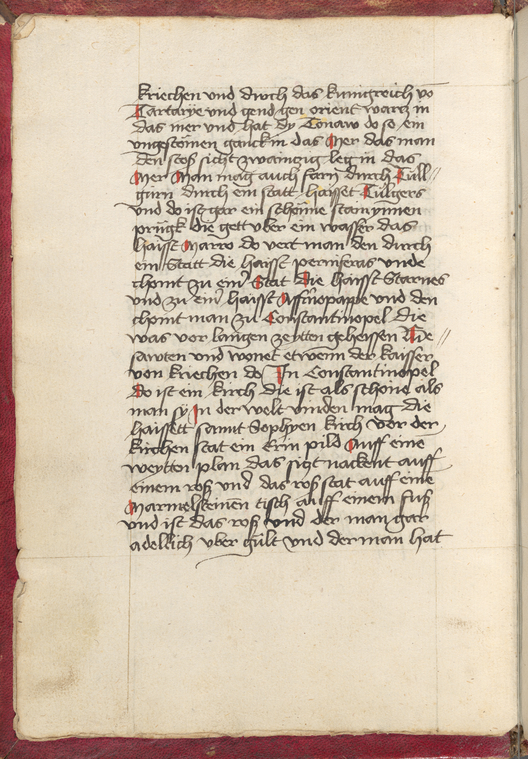 kriechen vnd durch das kunigreich vo
Tartarye vnd gend gen orient wartz in
das mer vnd hat dy Tonaw do so ein
vngestömen ganck in das Mer das man
den stoß sicht zwainzig leg in das
Mer Man mag auch farn durch Tull//
gurn durch ein statt haisset Tulgers
vnd do ist gar ein schöne stainynnen
prugk die gett vber ein wasser das
haisst Marro do vert man den durch
ein Statt die haisst pernseras vnde
chomt zu ein Stat Die haisst Starnes
vnd zu ein haisst Assmopape vnd den
chomt man zu Constantinopel die
was vor langen zeytten gehaissen We//
santen vnd wonet ettwenn der kaisser
von kriechen do In Constantinopel
do ist ein kirch die ist als schöne als
man sy In der welt vinden mag die
haissett sannt Sophyen kirch vor der
kirchen stat ein Erin pild Auff eine
weytten plan das sigt nackent auff
einem roß vnd das roß stat auff eine
Marmelsteinen tisch auff einem fuß
vnd ist das roß vnd der man gar
adellich vber gült vnd der man hat